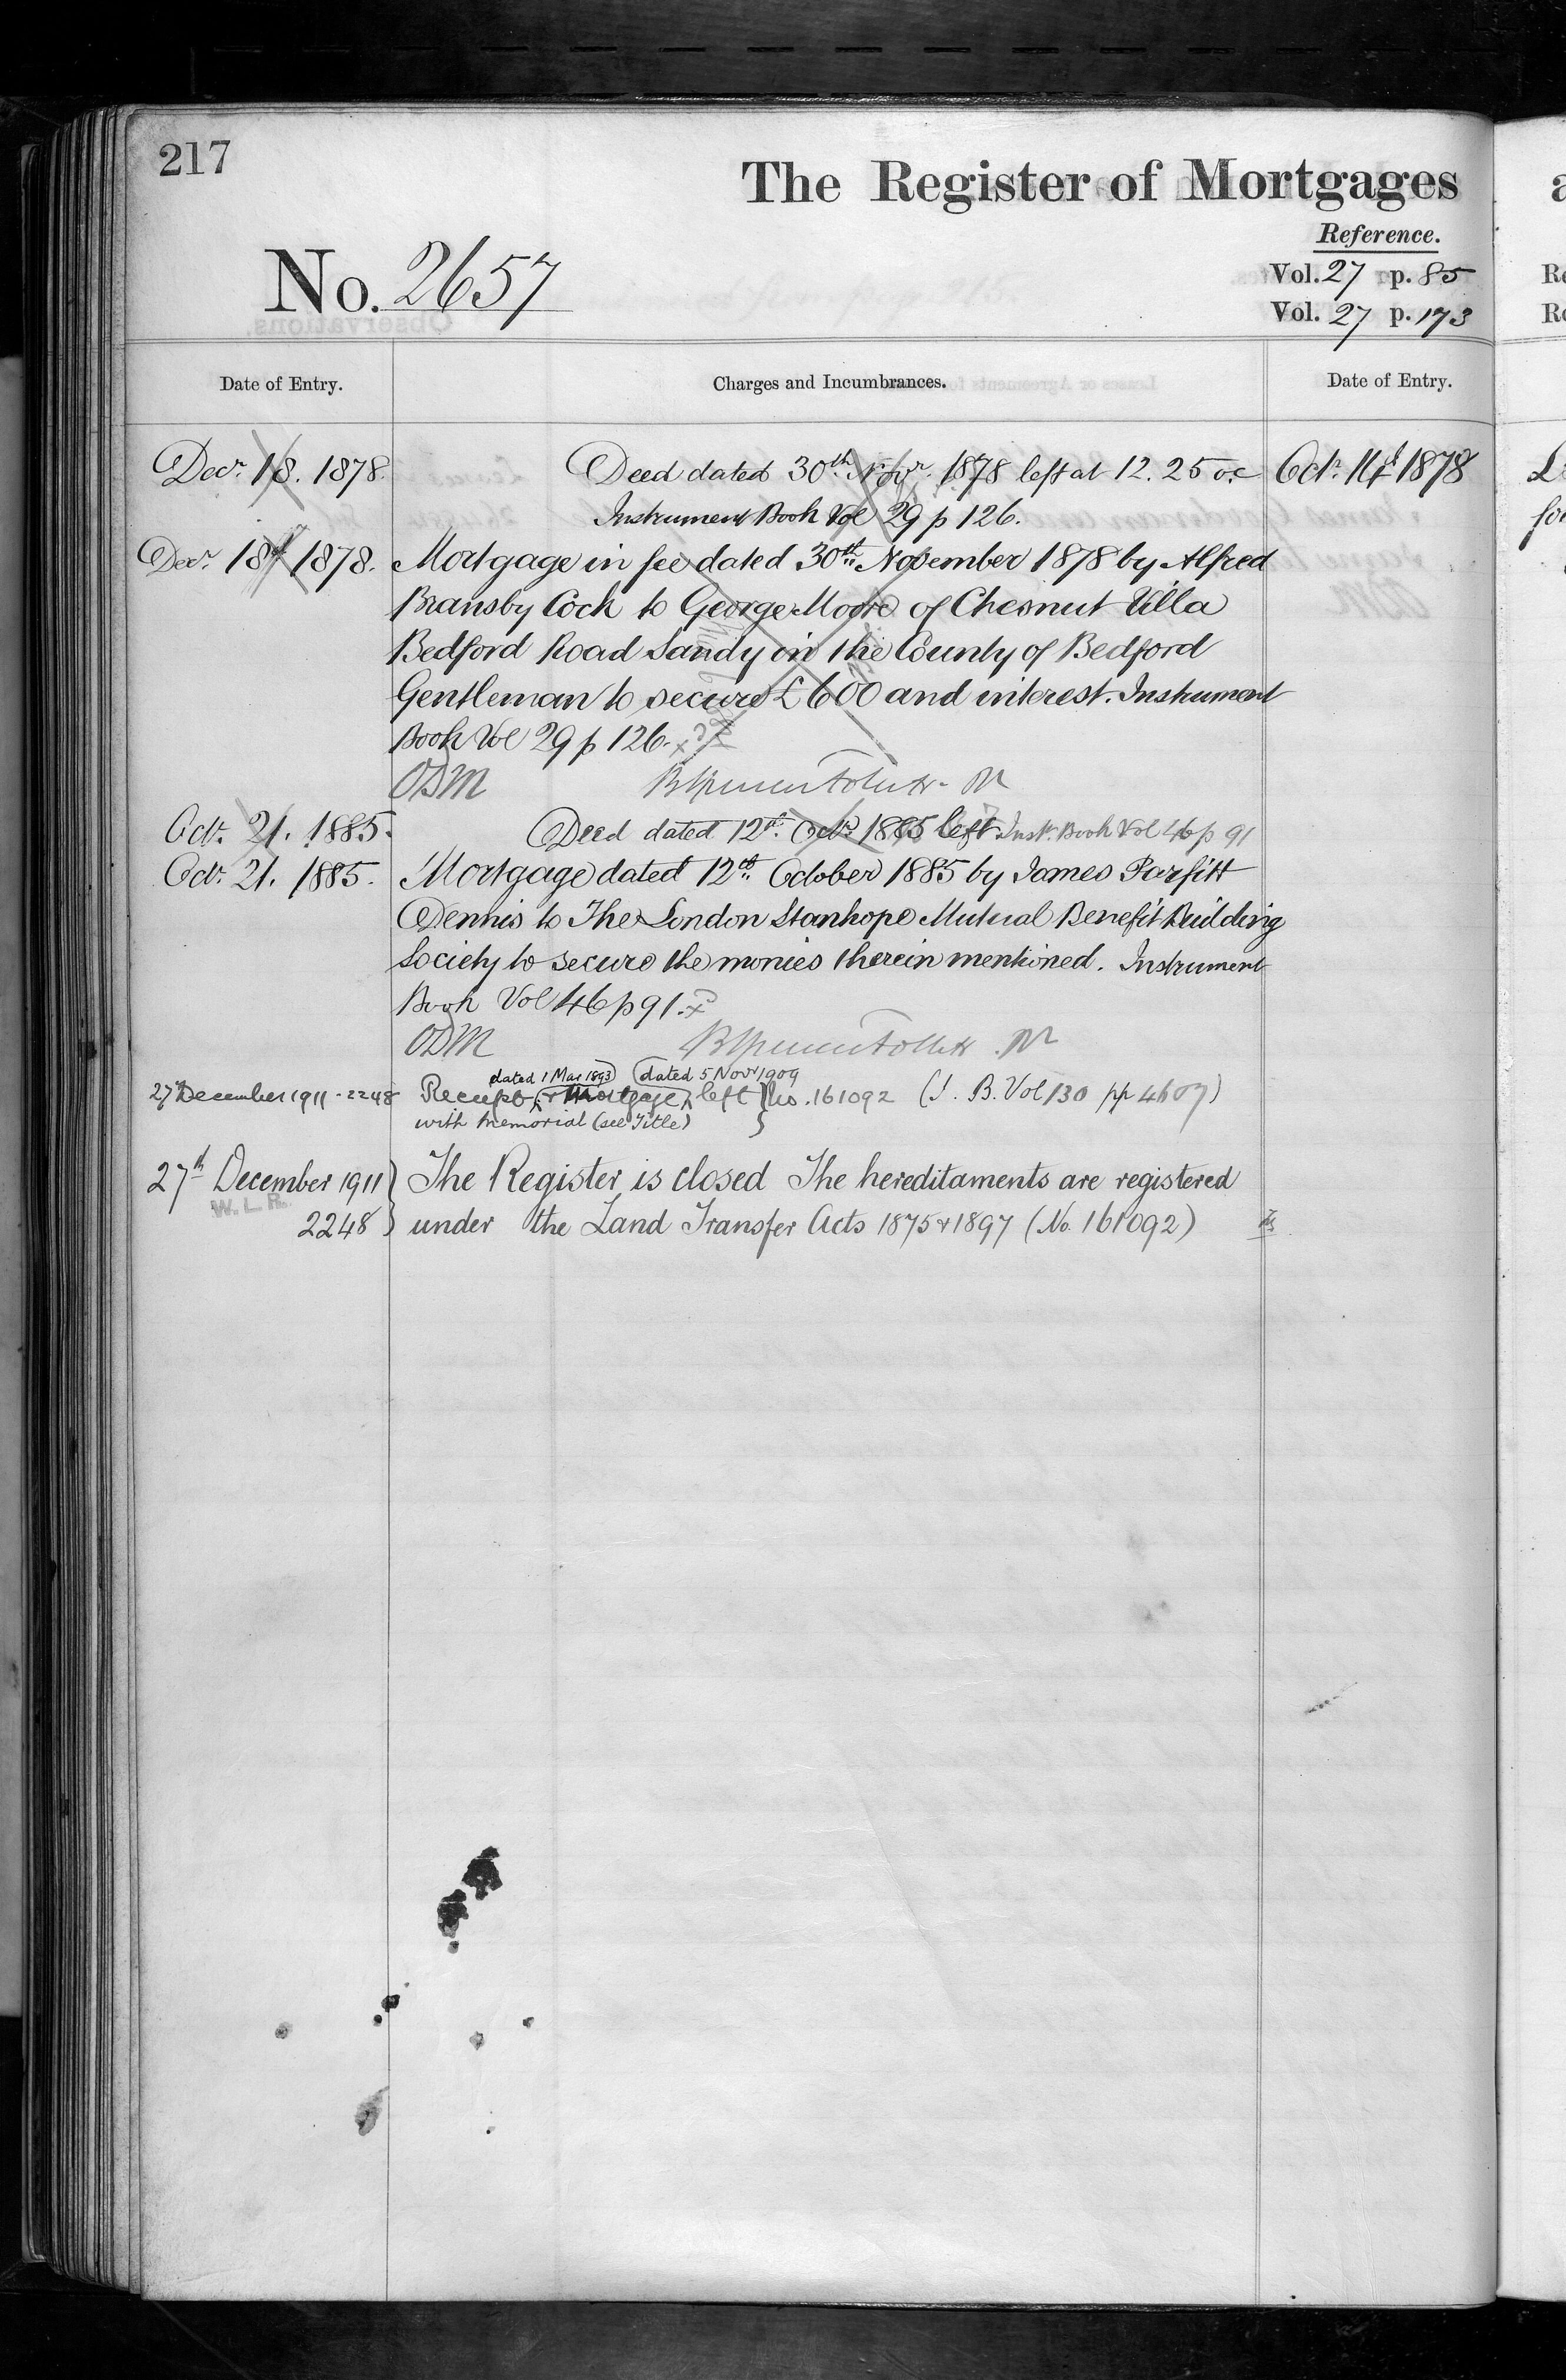 217
The Register of Mortgages
Reference.
No. 2657
Vol. 27 p. 85
Vol. 27 p. 173
Date of Entry.
Charges and Incumbrances.
Date of Entry.
Decr. 18. 1878.
Deed dated 30th. Novr. 1878 left at 12.25 oc
Oct. 1878
Instrument Book Vol 29 p 126.
Decr. 18th 1878.
Mortgage in fee dated 30th. November 1878 by Alfred
Bransby Cock to George Moore of Chesnut Villa
Bedford Road Sandy in the County of Bedford
Gentleman to secure £600 and interest. Instrument
Book Vol 29 p 126.
ODM
Oct. 21. 1885.
Deed dated 12th. Octr. 1885 left Inst. Book Vol 46 p 91
Oct. 21. 1885.
Mortgage dated 12th. October 1885 by James Parfitt
Dennis to The London Stanhope Mutual Benefit Building
Society to secure the monies therein mentioned. Instrument
Book Vol 46 p 91.
ODM
dated 1 Mar 1893 dated 5 Novr 1909
27th December 1911 - 2248
Receipt & Mortgage left } No. 161092 (I. B. Vol 130 pp 4607)
with memorial (see Title)
27th December 1911 }
The Register is closed The hereditaments are registered
W. L. R.
2248 }
under the Land Transfer Acts 1875 & 1897 (No. 161092)